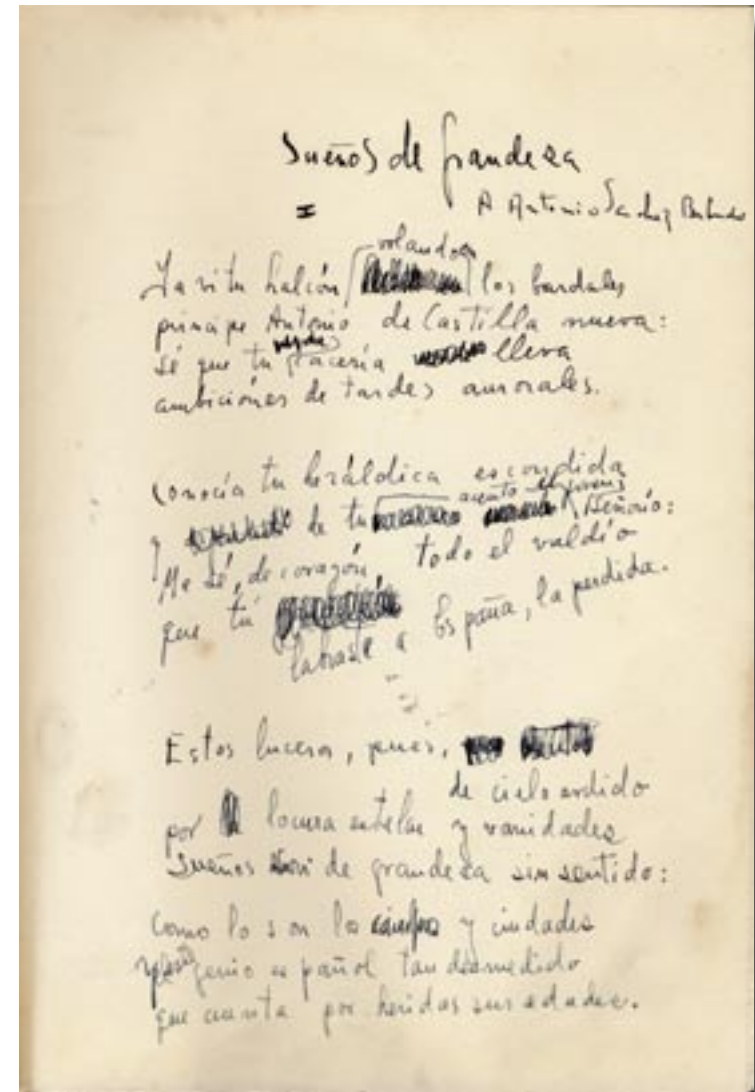 Sueños de grandeza
I
A Antonio Sanchez
volando
Ya vi tu halcón los bardales
príncipe Antonio de Castilla nueva:
sé que tu cacería lleva
ambiciones de tardes aurorales.
Conocía tu heráldica escondida
acento
y de tu Señorío:
Me sé, de corazón, todo el valdío
que tú
labraste a España, la perdida.
Estos luceros, pues,
de cielo ardido
por locura y vanidades
Sueños son de grandeza sin sentido:
como lo son los campos y ciudades
genio español tan desmedido
que cuenta por heridas sus edades.